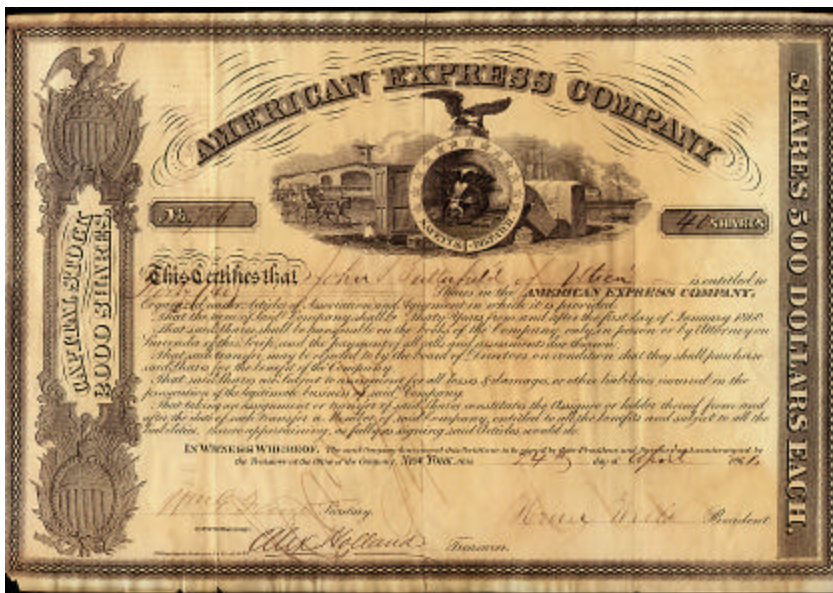 AMERICAN EXPRESS COMPANY
SAFETY & DISPATCH
CAPITAL STOCK
3000 SHARES
SHARES 500 DOLLARS EACH.
No. 756
40 SHARES
This Certifies that John Butterfield of Utica is entitled to
Forty Shares in the AMERICAN EXPRESS COMPANY,
Company under Articles of Association and Agreement in which it is provided
That the term of said Company shall be Thirty Years from and after the first day of January 1860
That said Shares shall be transferable on the books of the Company only in person or by Attorney on
Surrender of this Scrip and the payment of all calls and assessments due thereon.
That such transfer may be objected to by the board of Directors on condition that they shall purchase
said Shares for the benefit of the Company.
That said Shares are subject to assignment for all losses & damages, or other liabilities incurred in the
prosecution of the legitimate business of said Company.
That taking an assignment or transfer of said Shares constitutes the Assignee or holder thereof from and
after the date of such Transfer a Member of said Company, entitled to all the benefits and subject to all the
liabilities, thereto appertaining, as fully as signing said Articles would do.
IN WITNESS WHEREOF, The said Company have caused this Certificate to be signed by their President and Secretary and countersigned by
the Treasurer at the Office of the Company, NEW YORK, this 24th day of April 186
Secretary.
Henry Wells President
Alex Holland Treasurer.